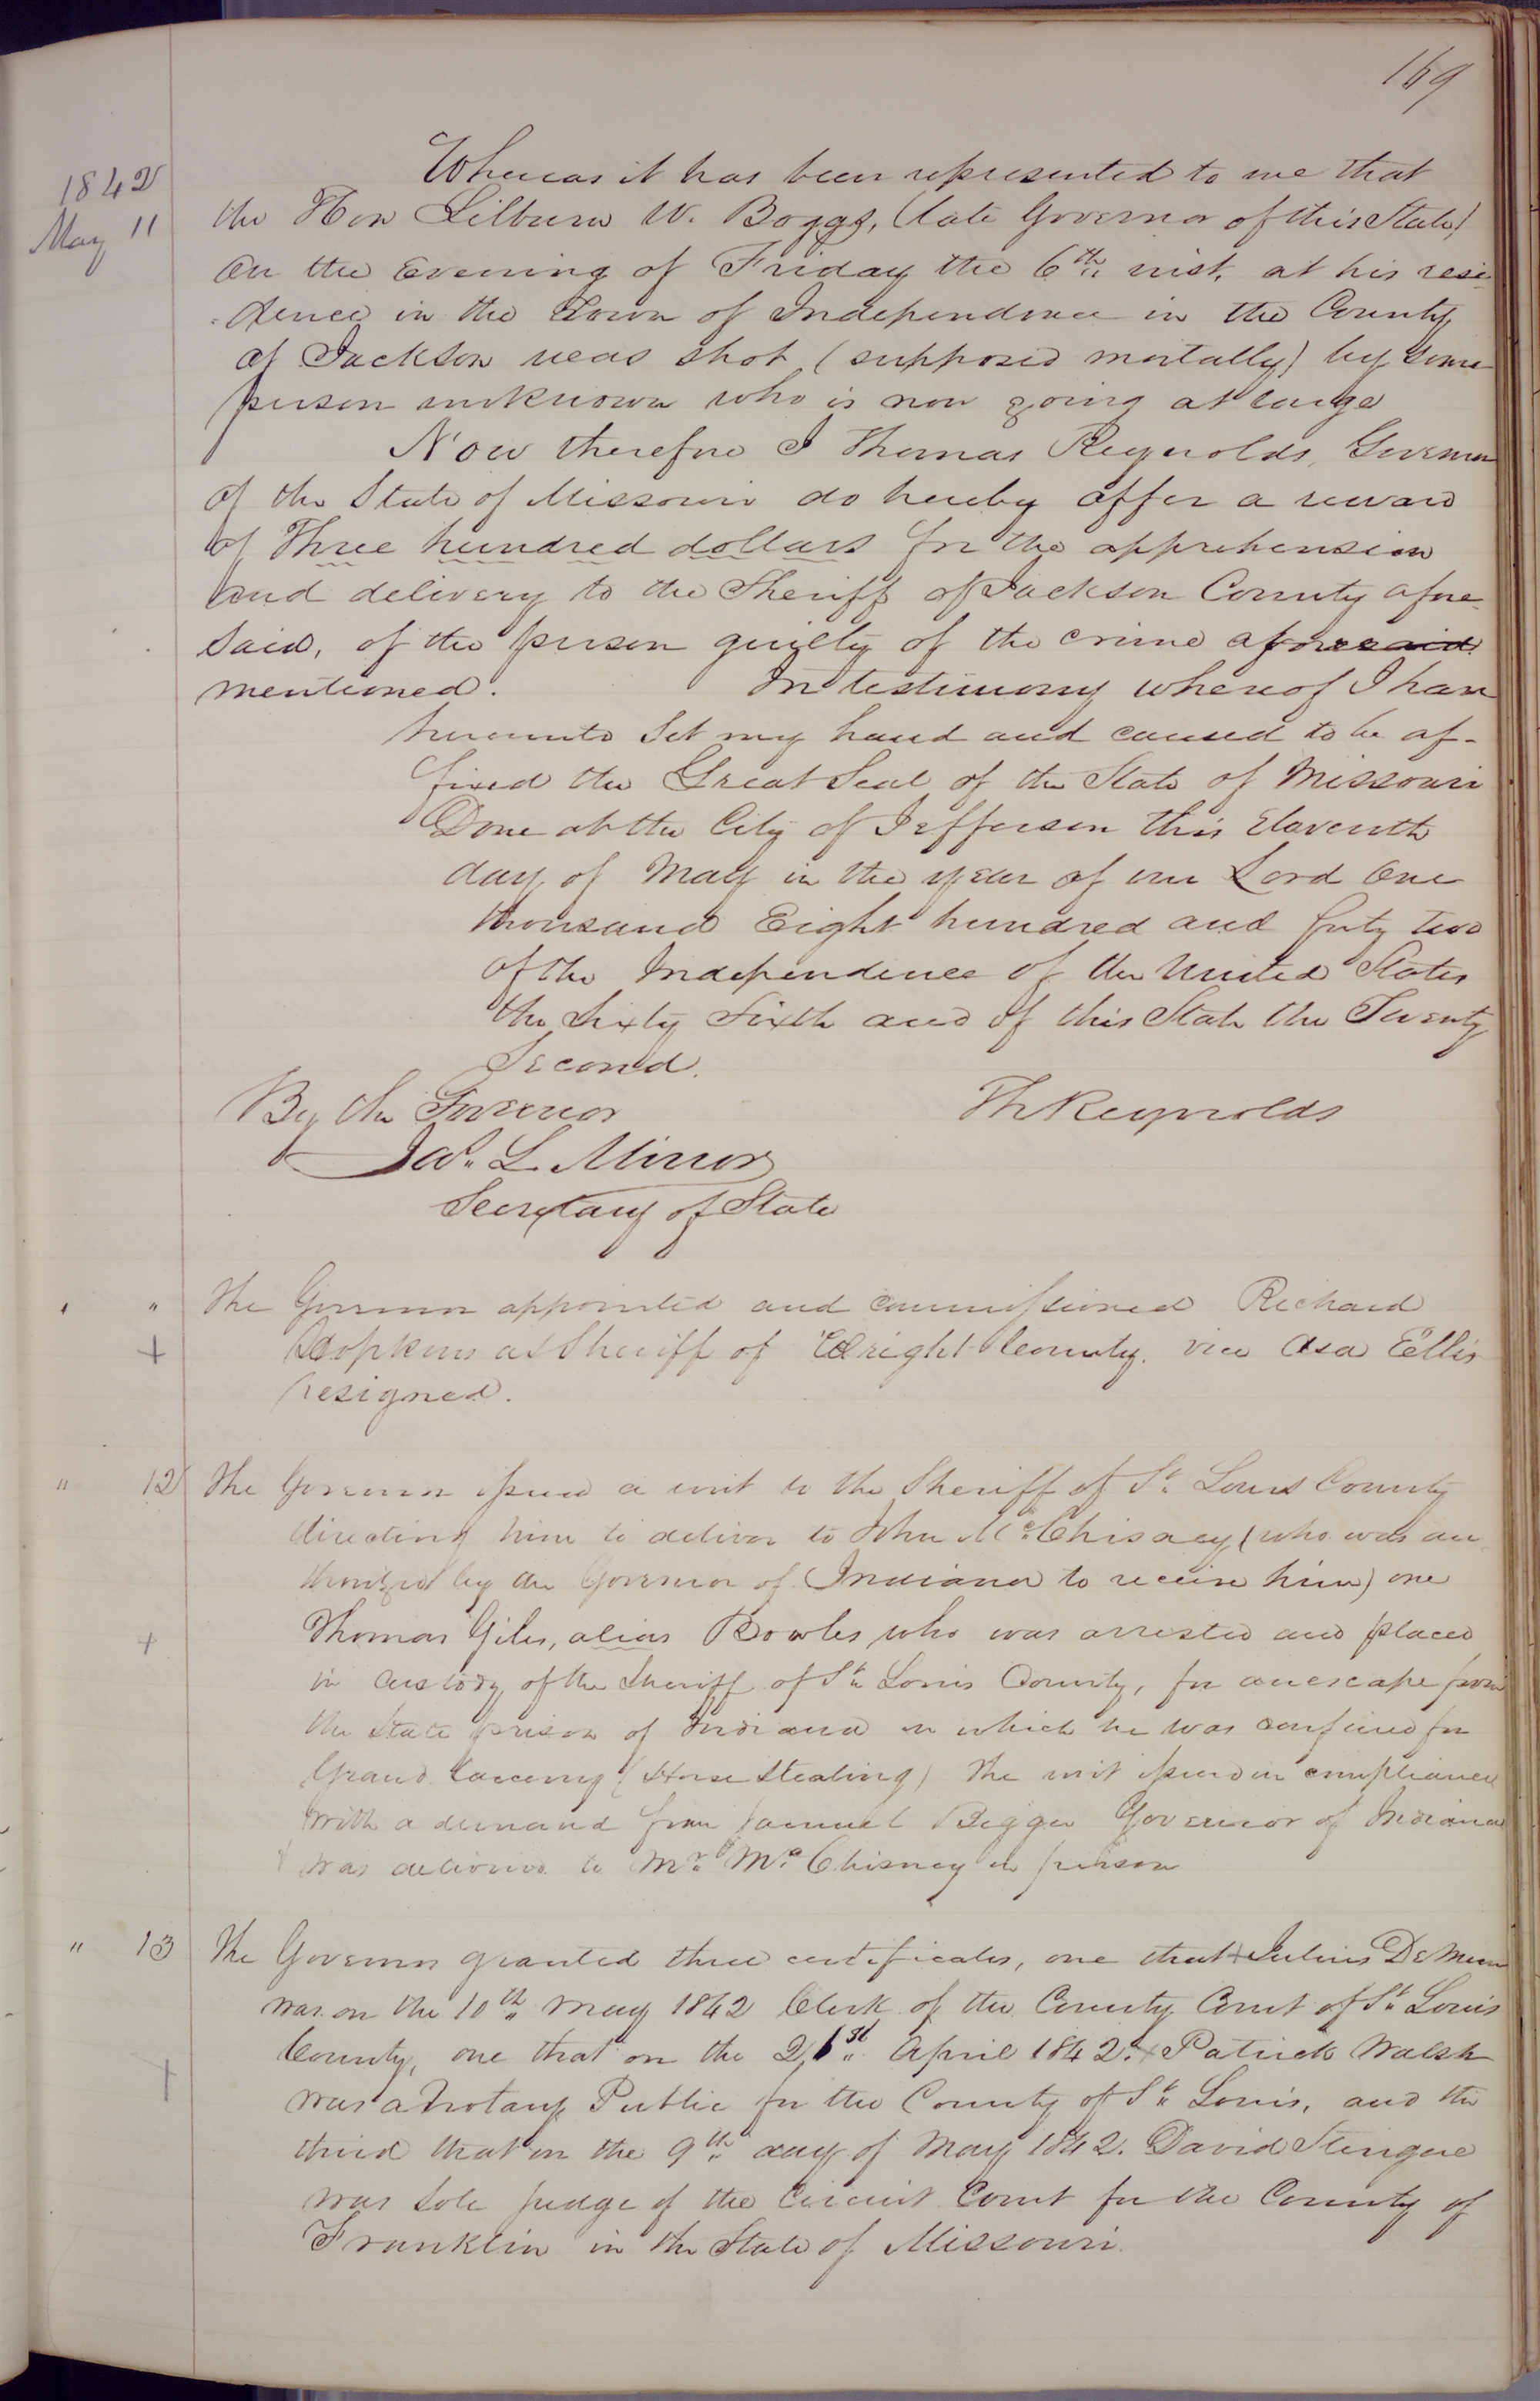 169
1842
May 11
Whereas it has been represented to me that
the Hon Lilburn W. Boggs, (late Governor of this State)
on the Evening of Friday the 6th inst. at his resi
-dence in the Town of Independence in the County
of Jackson was shot (supposed mortally) by some
person unknown who is now going at large
Now therefore I Thomas Reynolds, Governor
of the State of Missouri do hereby offer a reward
of Three hundred dollars for the apprehension
and delivery to the Sheriff of Jackson County afore
said, of the person guilty of the crime aforesaid
mentioned. In testimony whereof I have
hereunto set my hand and caused to be af-
fixed the Great Seal of the State of Missouri
Done at the City of Jefferson this Eleventh
day of May in the year of our Lord One
thousand Eight hundred and forty two
of the Independence of the United States
the Sixty Sixth and of this State the Twenty
Second.
By the Governor Th Reynolds
Jas. L. Minor
Secretary of State
" " The Governor appointed and commissioned Richard
+ Hopkins as Sheriff of Wright County. vice Asa Ellis
resigned.
" 12 The Governor issued a writ to the Sheriff of St. Louis County
directing him to deliver to John Mc.Chisney (who was au
thorized by the Governor of Indiana to receive him) one
+ Thomas Giles, alias Bowles who was arrested and placed
in custody of the Sheriff of St. Louis County, for an escape from
the State prison of Indiana in which he was confined for
Grand Larceny (Horse Stealing) The writ issued in compliance
with a demand from Samuel Bigger Governor of Indiana
& was delivered to Mr. Mc.Chisney in person
" 13 The Governor granted three certificates, one that + Julius DeMun
was on the 10th May 1842 Clerk of the County Court of St. Louis
+ County, one that on the 21st April 1842. + Patrick Walsh
was a Notary Public for the County of St. Louis, and the
third that on the 9th day of May 1842. David Sterigere
was sole judge of the Circuit Court for the County of
Franklin in the State of Missouri.